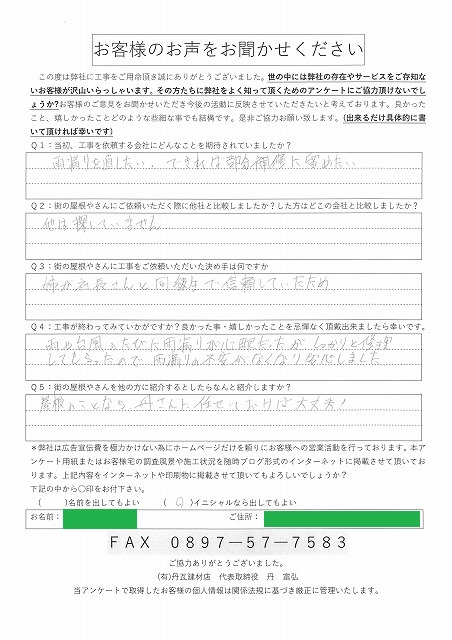 お客様のお声をお聞かせください
この度は弊社に工事をご用命頂き誠にありがとうございました。世の中には弊社の存在やサービスをご存知な
いお客様が沢山いらっしゃいます。その方たちに弊社をよく知って頂くためのアンケートにご協力頂けないでし
ょうか?お客様のご意見をお聞かせいただき今後の活動に反映させていただきたいと考えております。良かった
こと、嬉しかったことどのような些細な事でも結構です。是非ご協力お願い致します。(出来るだけ具体的に書
いて頂ければ幸いです)
Q1:当初、工事を依頼する会社にどんなことを期待されていましたか?
雨漏りを直したい。できれば部分補修に留めたい
Q2:街の屋根やさんにご依頼いただく際に他社と比較しましたか?した方はどこの会社と比較しましたか?
他は探していません
Q3:街の屋根やさんに工事をご依頼いただいた決め手は何ですか
姉が社長さんと同級生で信頼していたため
Q4:工事が終わってみていかがですか?良かった事・嬉しかったことを忌憚なく頂戴出来ましたら幸いです。
雨や台風のたびに雨漏りが心配だったが、しっかりと修理
してもらったので雨漏りの不安がなくなり安心しました
Q5:街の屋根やさんを他の方に紹介するとしたらなんと紹介しますか?
屋根のことなら、丹さんに任せておけば大丈夫!
*弊社は広告宣伝費を極力かけない為にホームページだけを頼りにお客様への営業活動を行っております。本ア
ンケート用紙またはお客様宅の調査風景や施工状況を随時ブログ形式のインターネットに掲載させて頂いてお
ります。上記内容をインターネットや印刷物に掲載させて頂いてもよろしいでしょうか?
下記の中から〇印をお付下さい。
( )名前を出してもよい ( ○ )イニシャルなら出してもよい
お名前: ご住所:
FAX 0897-57-7583
ご協力ありがとうございました。
(有)丹瓦建材店 代表取締役 丹 富弘
当アンケートで取得したお客様の個人情報は関係法規に基づき厳正に管理いたします。